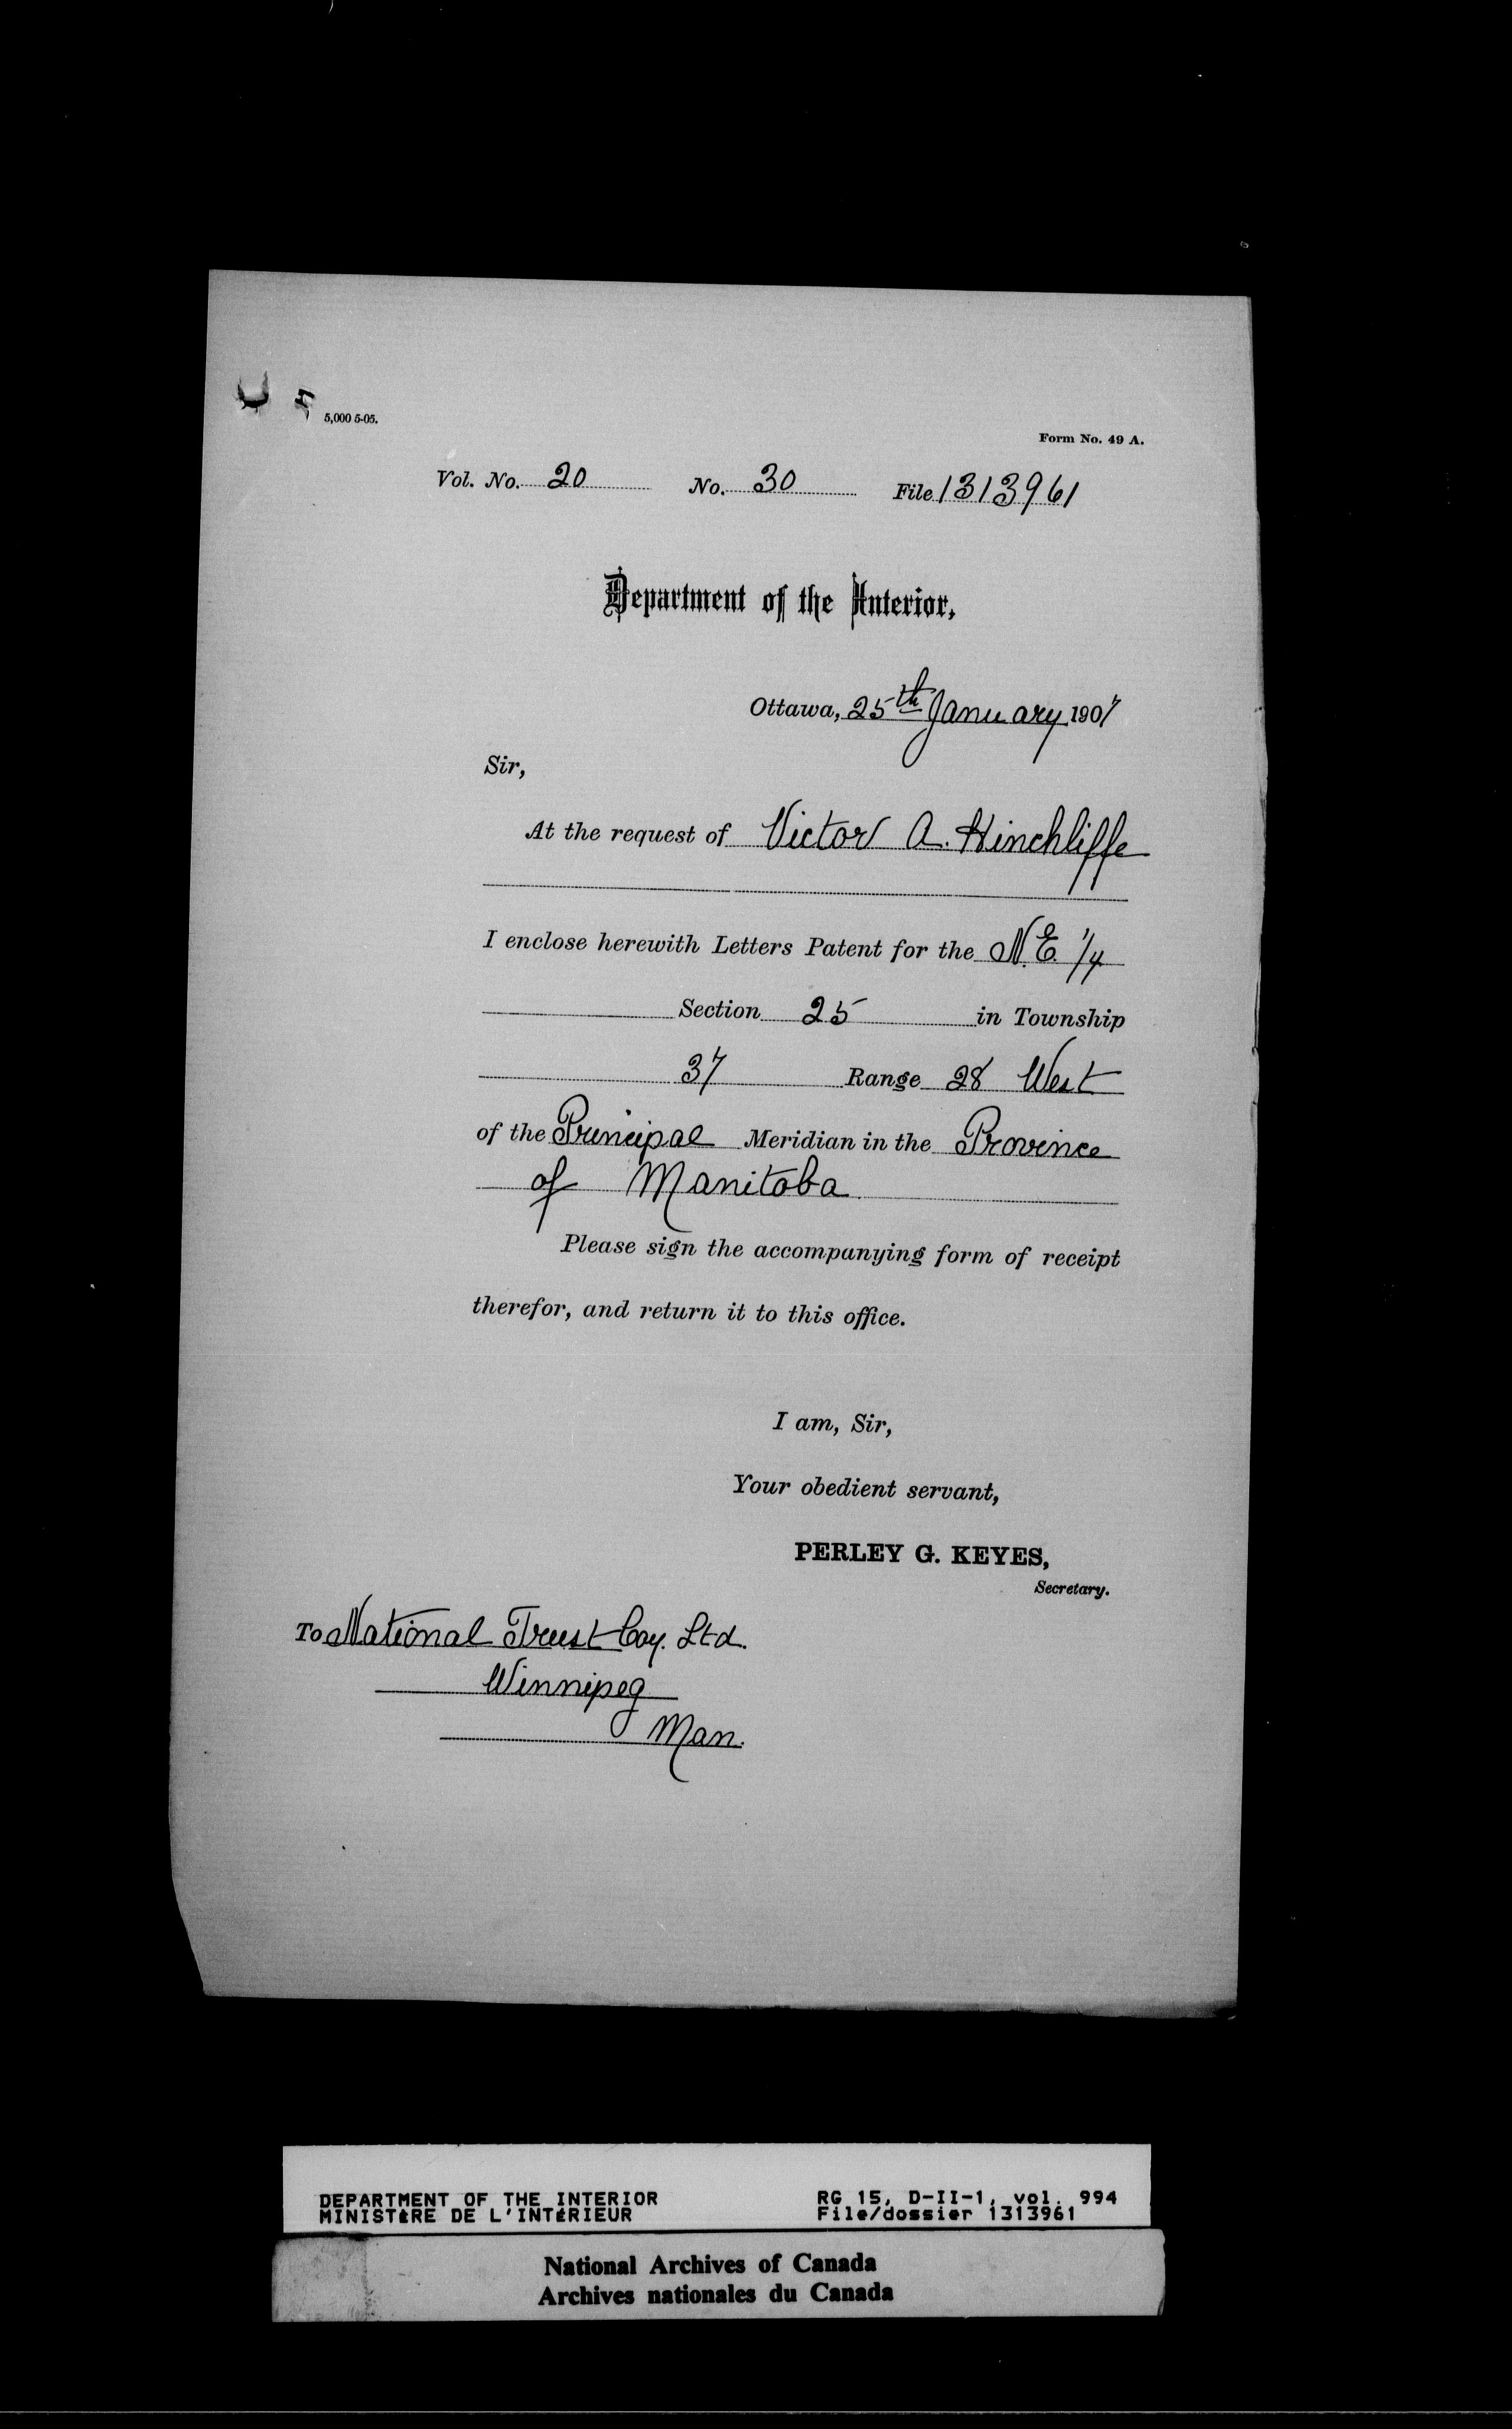 5,000 5-05.
Form No. 49 A.
Vol. No. 20 No. 30 File 1313961
Department of the Interior,
Ottawa, 25th January 1907
Sir,
At the request of Victor A. Hinchliffe
I enclose herewith Letters Patent for the N.E. 1/4
Section 25 in Township
37 Range 28 West
of the Principal Meridian in the Province
of Manitoba
Please sign the accompanying form of receipt
therefor, and return it to this office.
I am, Sir,
Your obedient servant,
PERLEY G. KEYES,
Secretary.
To National Trust Coy. Ltd.
Winnipeg
Man.
DEPARTMENT OF THE INTERIOR RG 15, D-II-1, vol. 994
MINISTÈRE DE L'INTÉRIEUR File/dossier 1313961
National Archives of Canada
Archives nationales du Canada